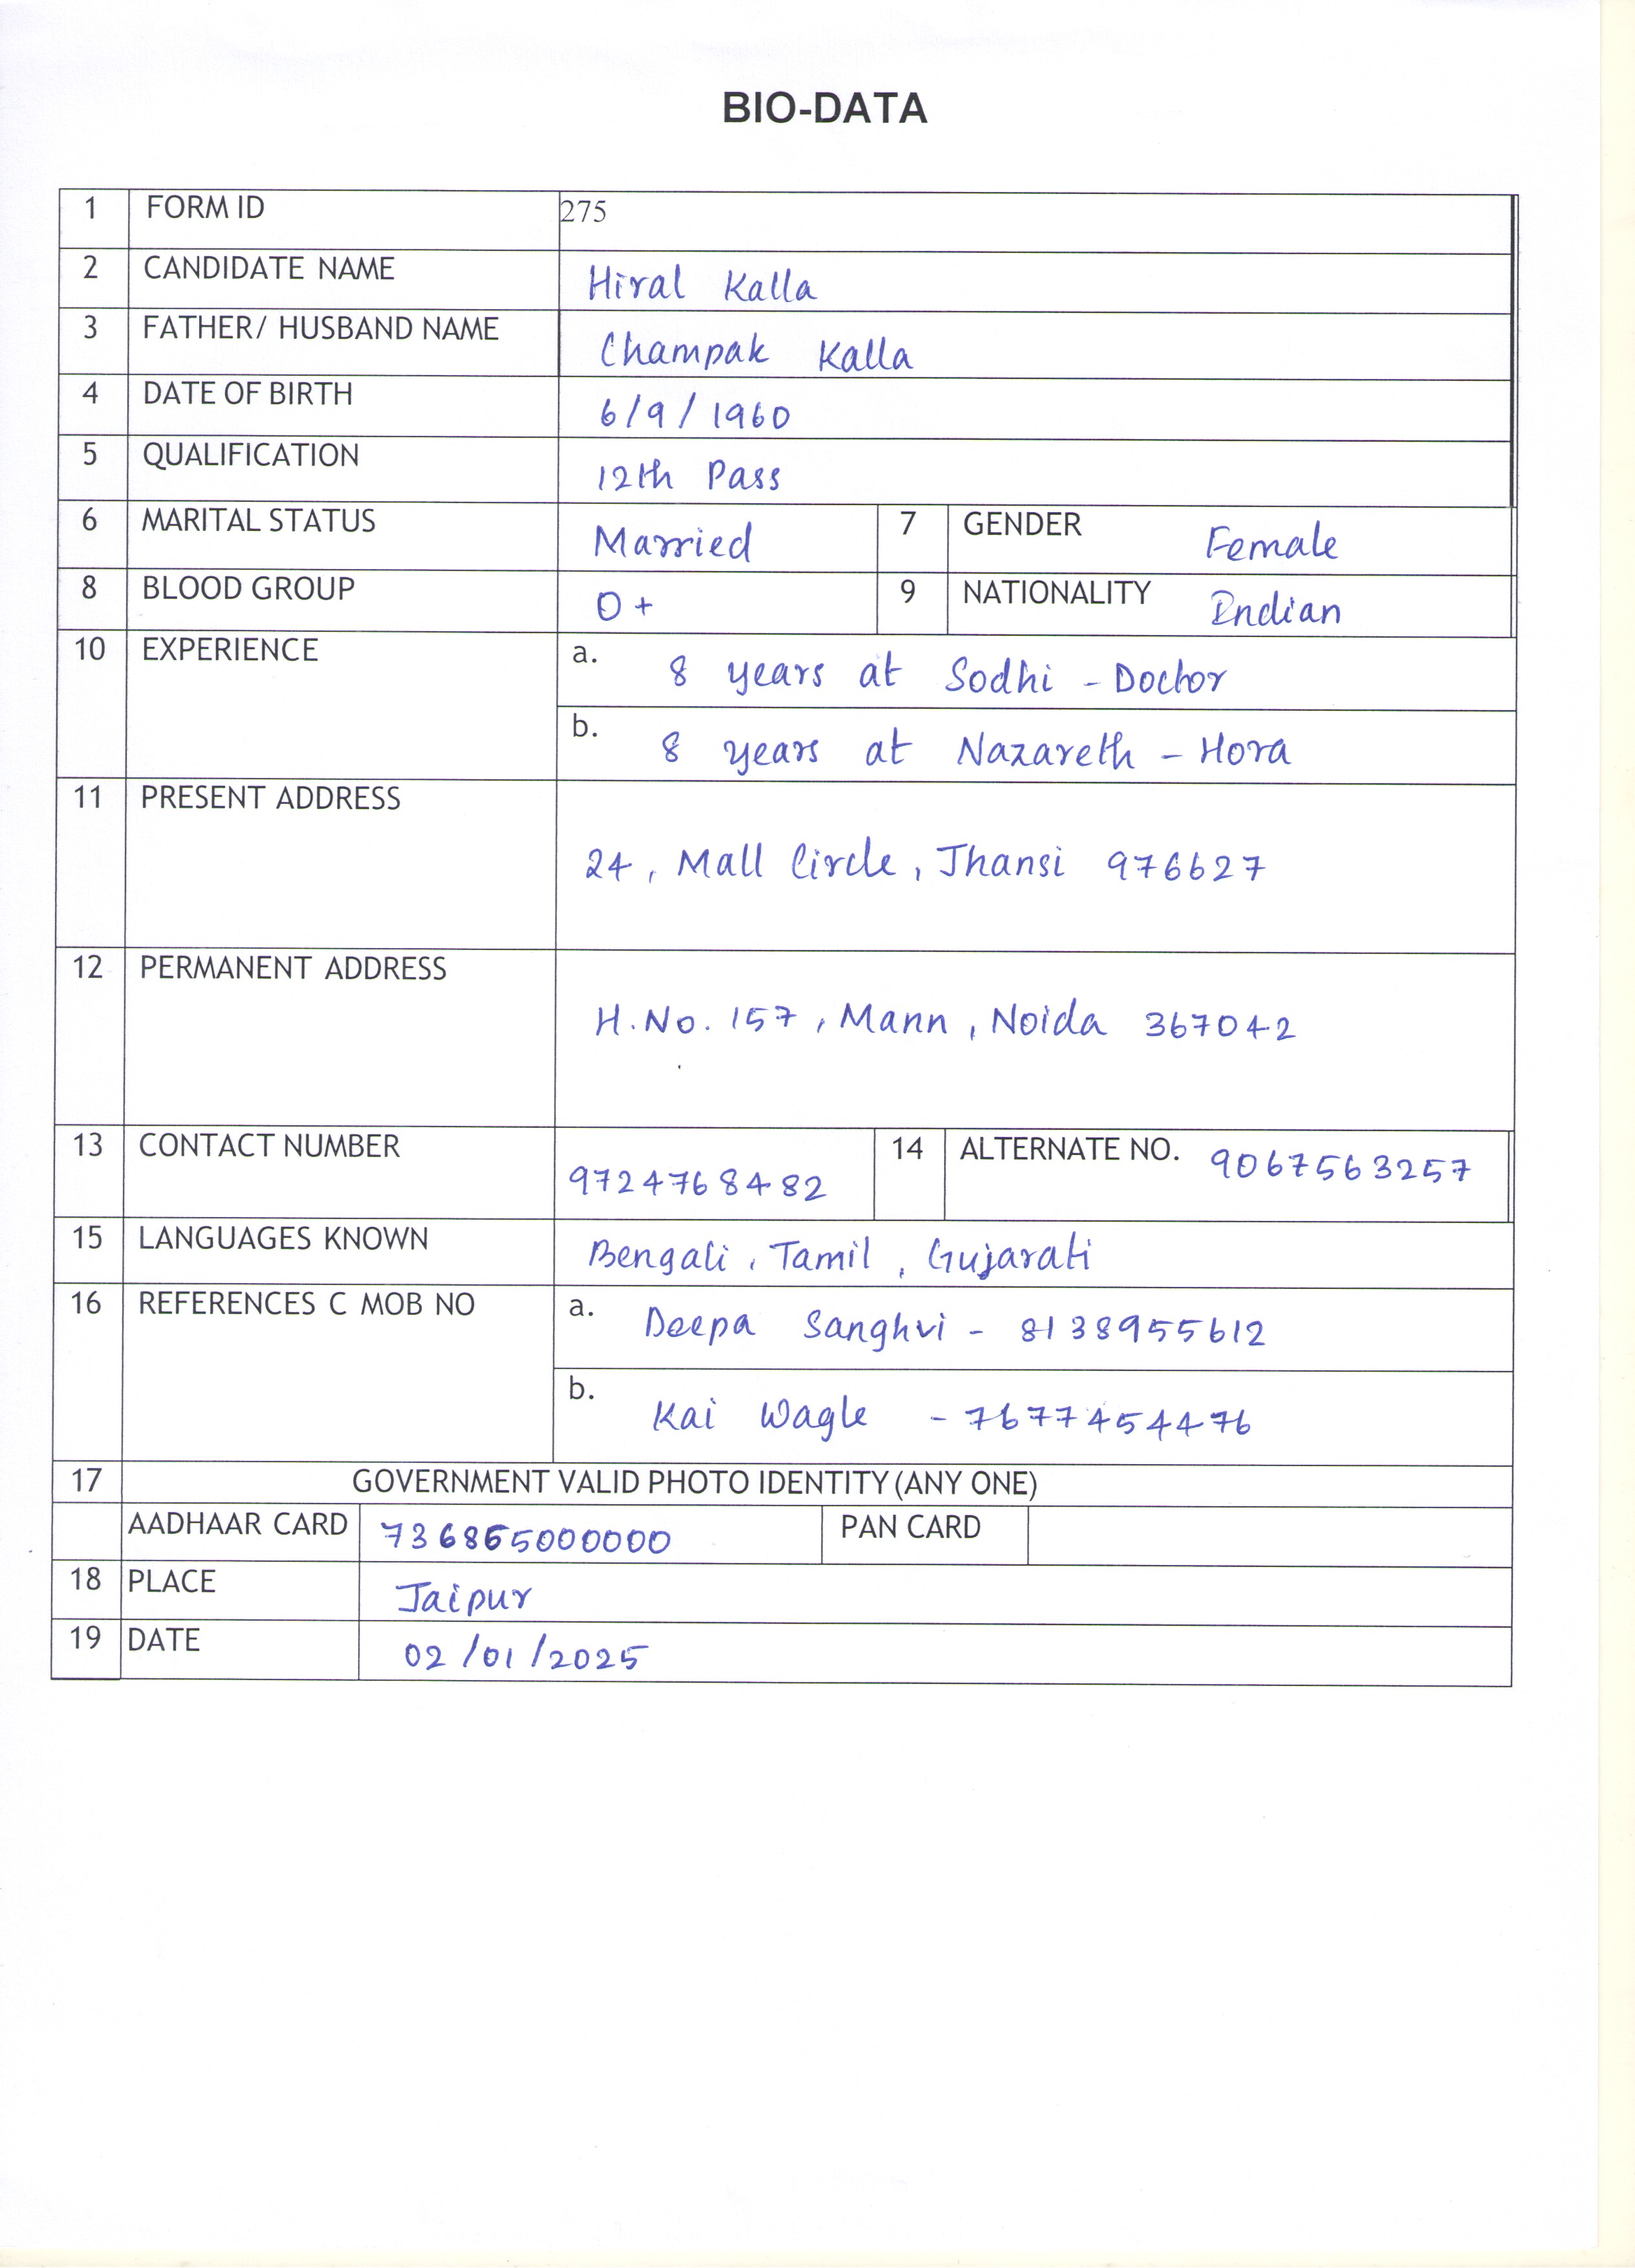 BIO-DATA
1 FORM ID 275
2 CANDIDATE NAME Hiral Kalla
3 FATHER/ HUSBAND NAME Champak Kalla
4 DATE OF BIRTH 6/9/1960
5 QUALIFICATION 12th Pass
6 MARITAL STATUS Married 7 GENDER Female
8 BLOOD GROUP O+ 9 NATIONALITY Indian
10 EXPERIENCE a. 8 years at Sodhi - Doctor
b. 8 years at Nazareth - Hora
11 PRESENT ADDRESS
24, Mall Circle, Jhansi 976627
12 PERMANENT ADDRESS
H.No. 157, Mann, Noida 367042
13 CONTACT NUMBER 9724768482 14 ALTERNATE NO. 9067563257
15 LANGUAGES KNOWN Bengali, Tamil, Gujarati
16 REFERENCES C MOB NO a. Deepa Sanghvi - 8138955612
b. Kai Wagle - 7677454476
17 GOVERNMENT VALID PHOTO IDENTITY (ANY ONE)
AADHAAR CARD 736865000000 PAN CARD
18 PLACE Jaipur
19 DATE 02/01/2025